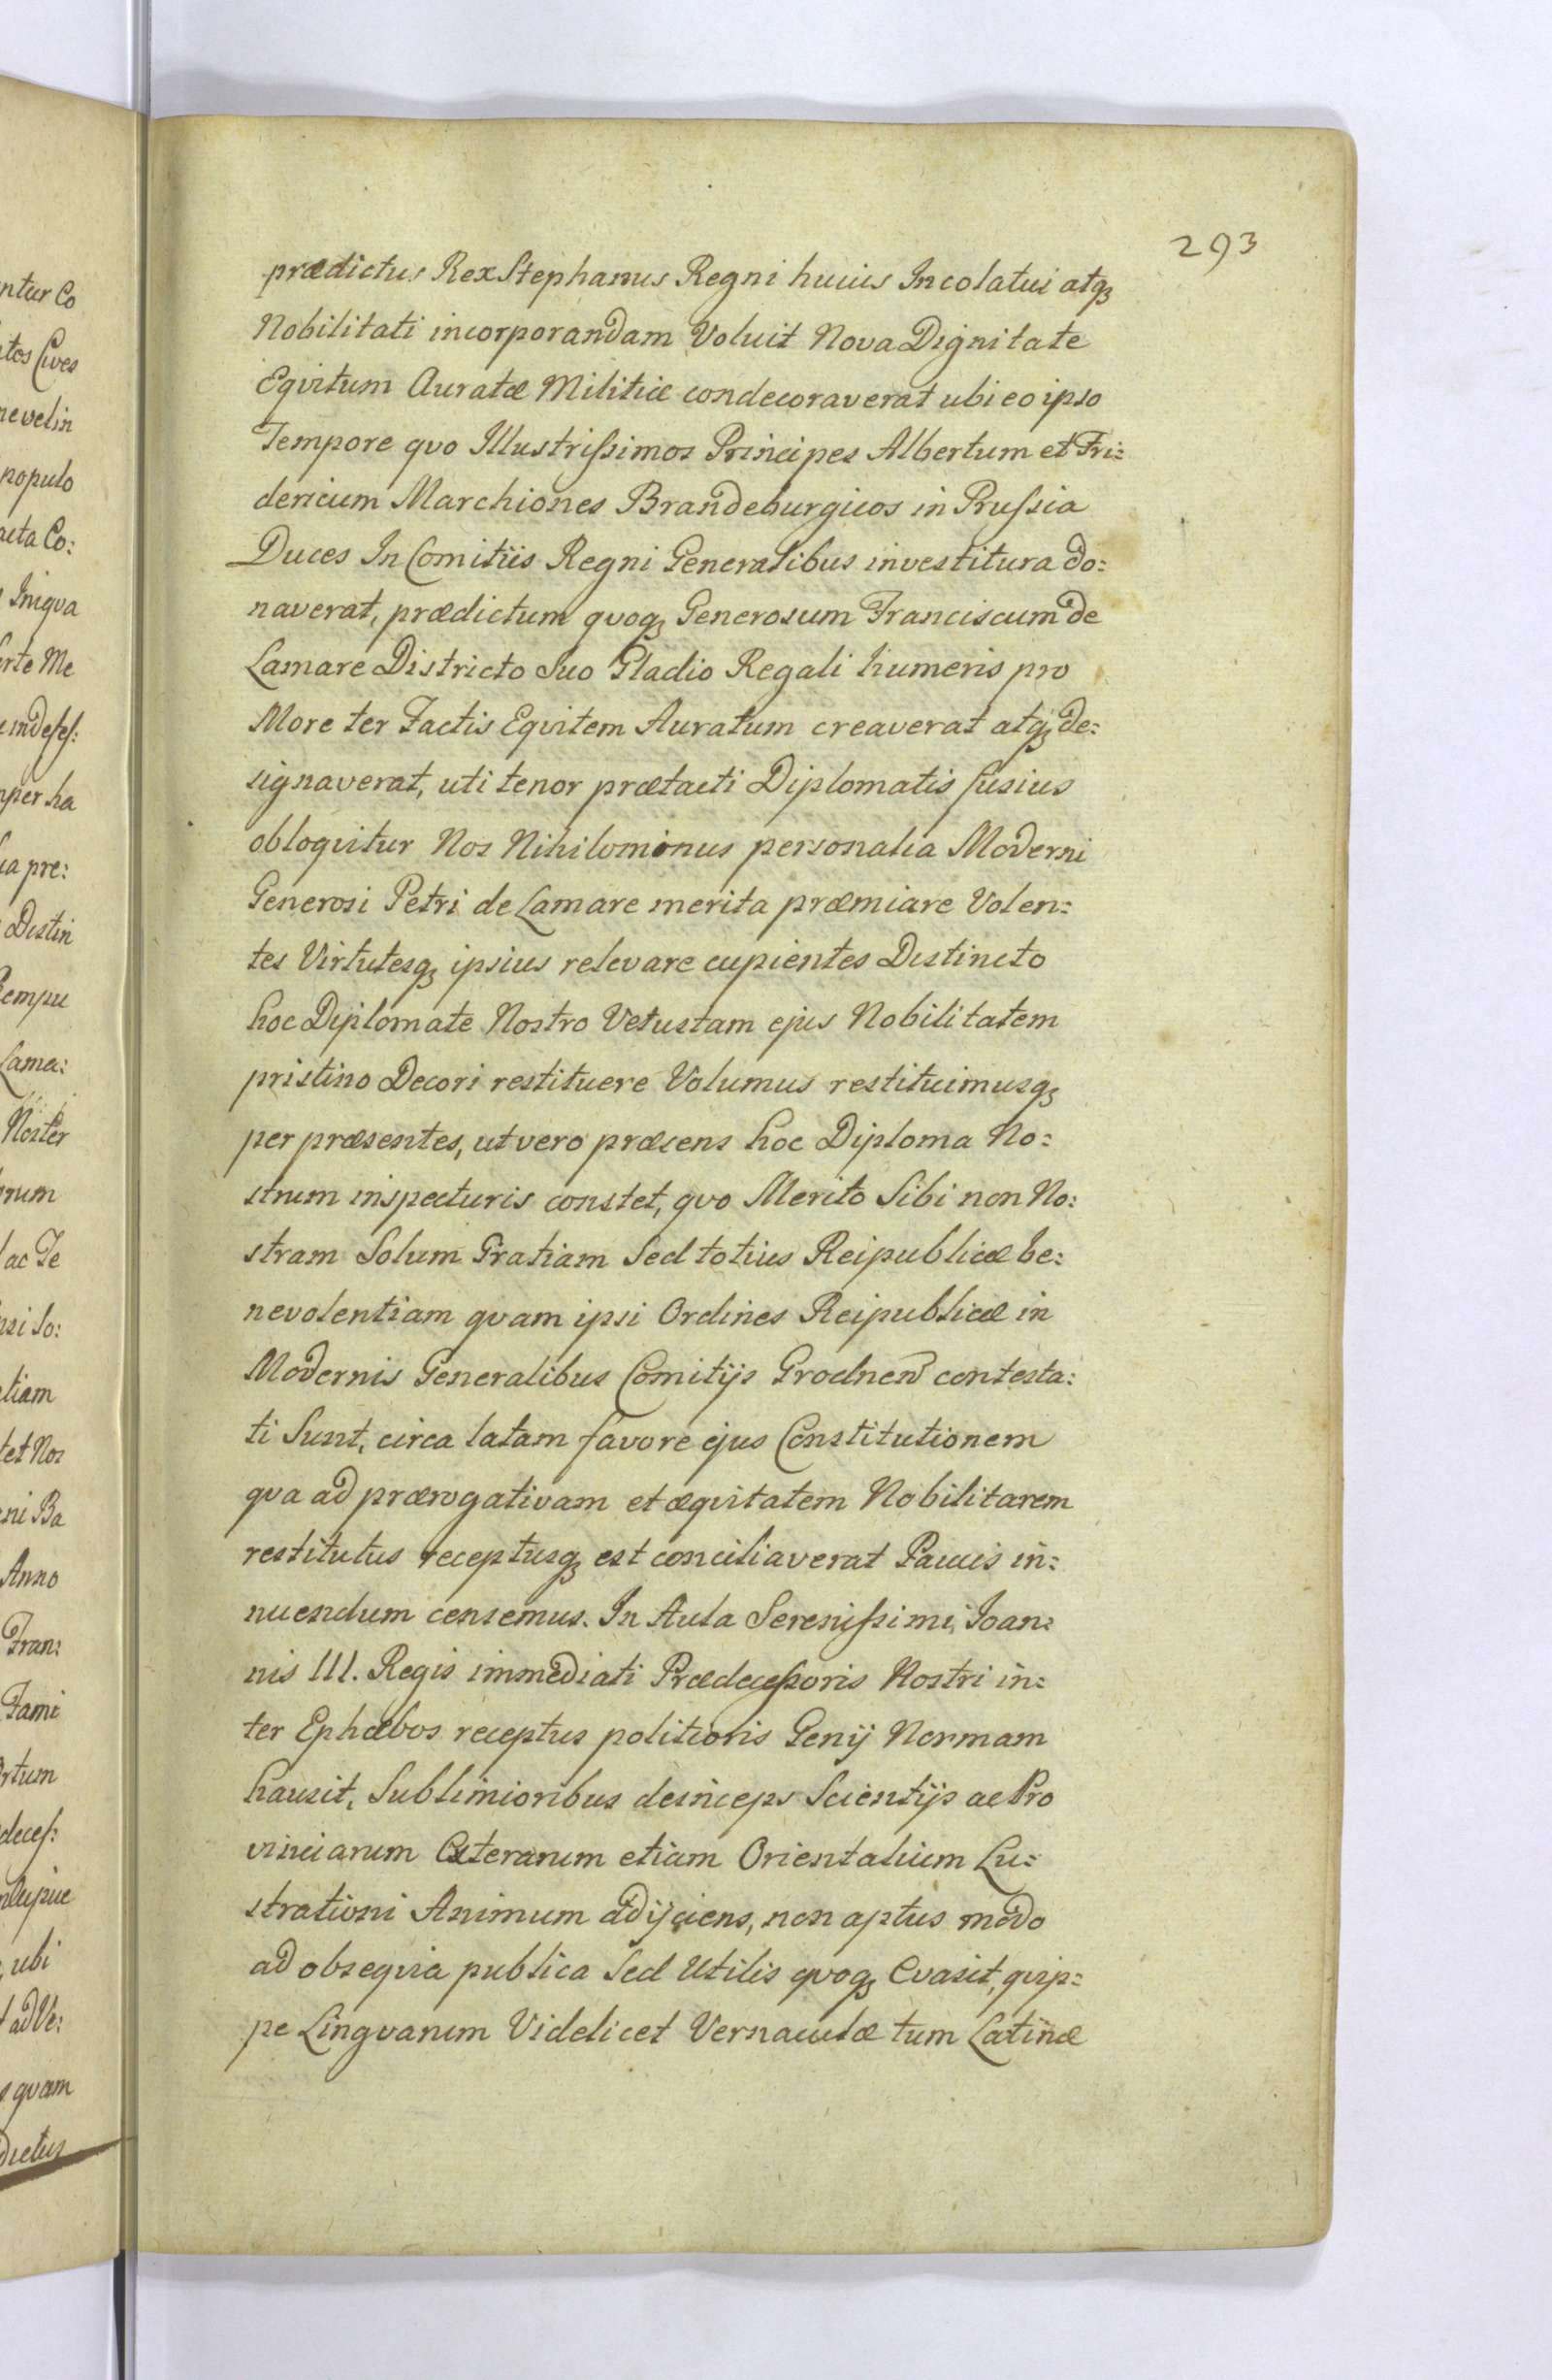 293
prædictus Rex Stephanus Regni huius Incolatui atq3
Nobilitati incorporandam Voluit Nova Dignitate
Eqvitum Auratæ Militiæ condecoraverat ubi eo ipso
Tempore qvo Illustrissimos Principes Albertum et Fri:
dericum Marchiones Brandeburgicos in Prussia
Duces In Comitiis Regni Generalibus investitura do:
naverat, prædictum qvoq3 Generosum Franciscum de
Lamare Districto Suo Gladio Regali humeris pro
More ter Tactis Eqvitem Auratum creaverat atq3 de:
signaverat, uti tenor prætacti Diplomatis fusius
obloqvitur Nos Nihilominus personalia Moderni
Generosi Petri de Lamare merita præmiare Volen:
tes Virtutesq3 ipsius relevare cupientes Distincto
hoc Diplomate Nostro Vetustam ejus Nobilitatem
pristino Decori restituere Volumus restituimusq3
per præsentes, ut vero præsens hoc Diploma No:
strum inspecturis constet, qvo Merito Sibi non No:
stram Solum Gratiam Sed totius Reipublicæ be:
nevolentiam qvam ipsi Ordines Reipublicæ in
Modernis Generalibus Comitijs Grodnen contesta:
ti Sunt, circa latam favore ejus Constitutionem
qva ad prærogativam et æqvitatem Nobilitarem
restitutus receptusq3 est conciliaverat Paucis in:
nuendum censemus. In Aula Serenissimi Ioan:
nis III. Regis immediati Prædecessoris Nostri in:
ter Ephæbos receptus politioris Genij Normam
hausit, Sublimioribus deinceps Scientijs ac Pro
vinciarum Exterarum etiam Orientalium Lu:
strationi Animum adijciens, non aptus modo
ad obseqvia publica Sed Utilis qvoq3 Evasit, qvip:
pe Lingvarum Videlicet Vernaculæ tum Latinæ